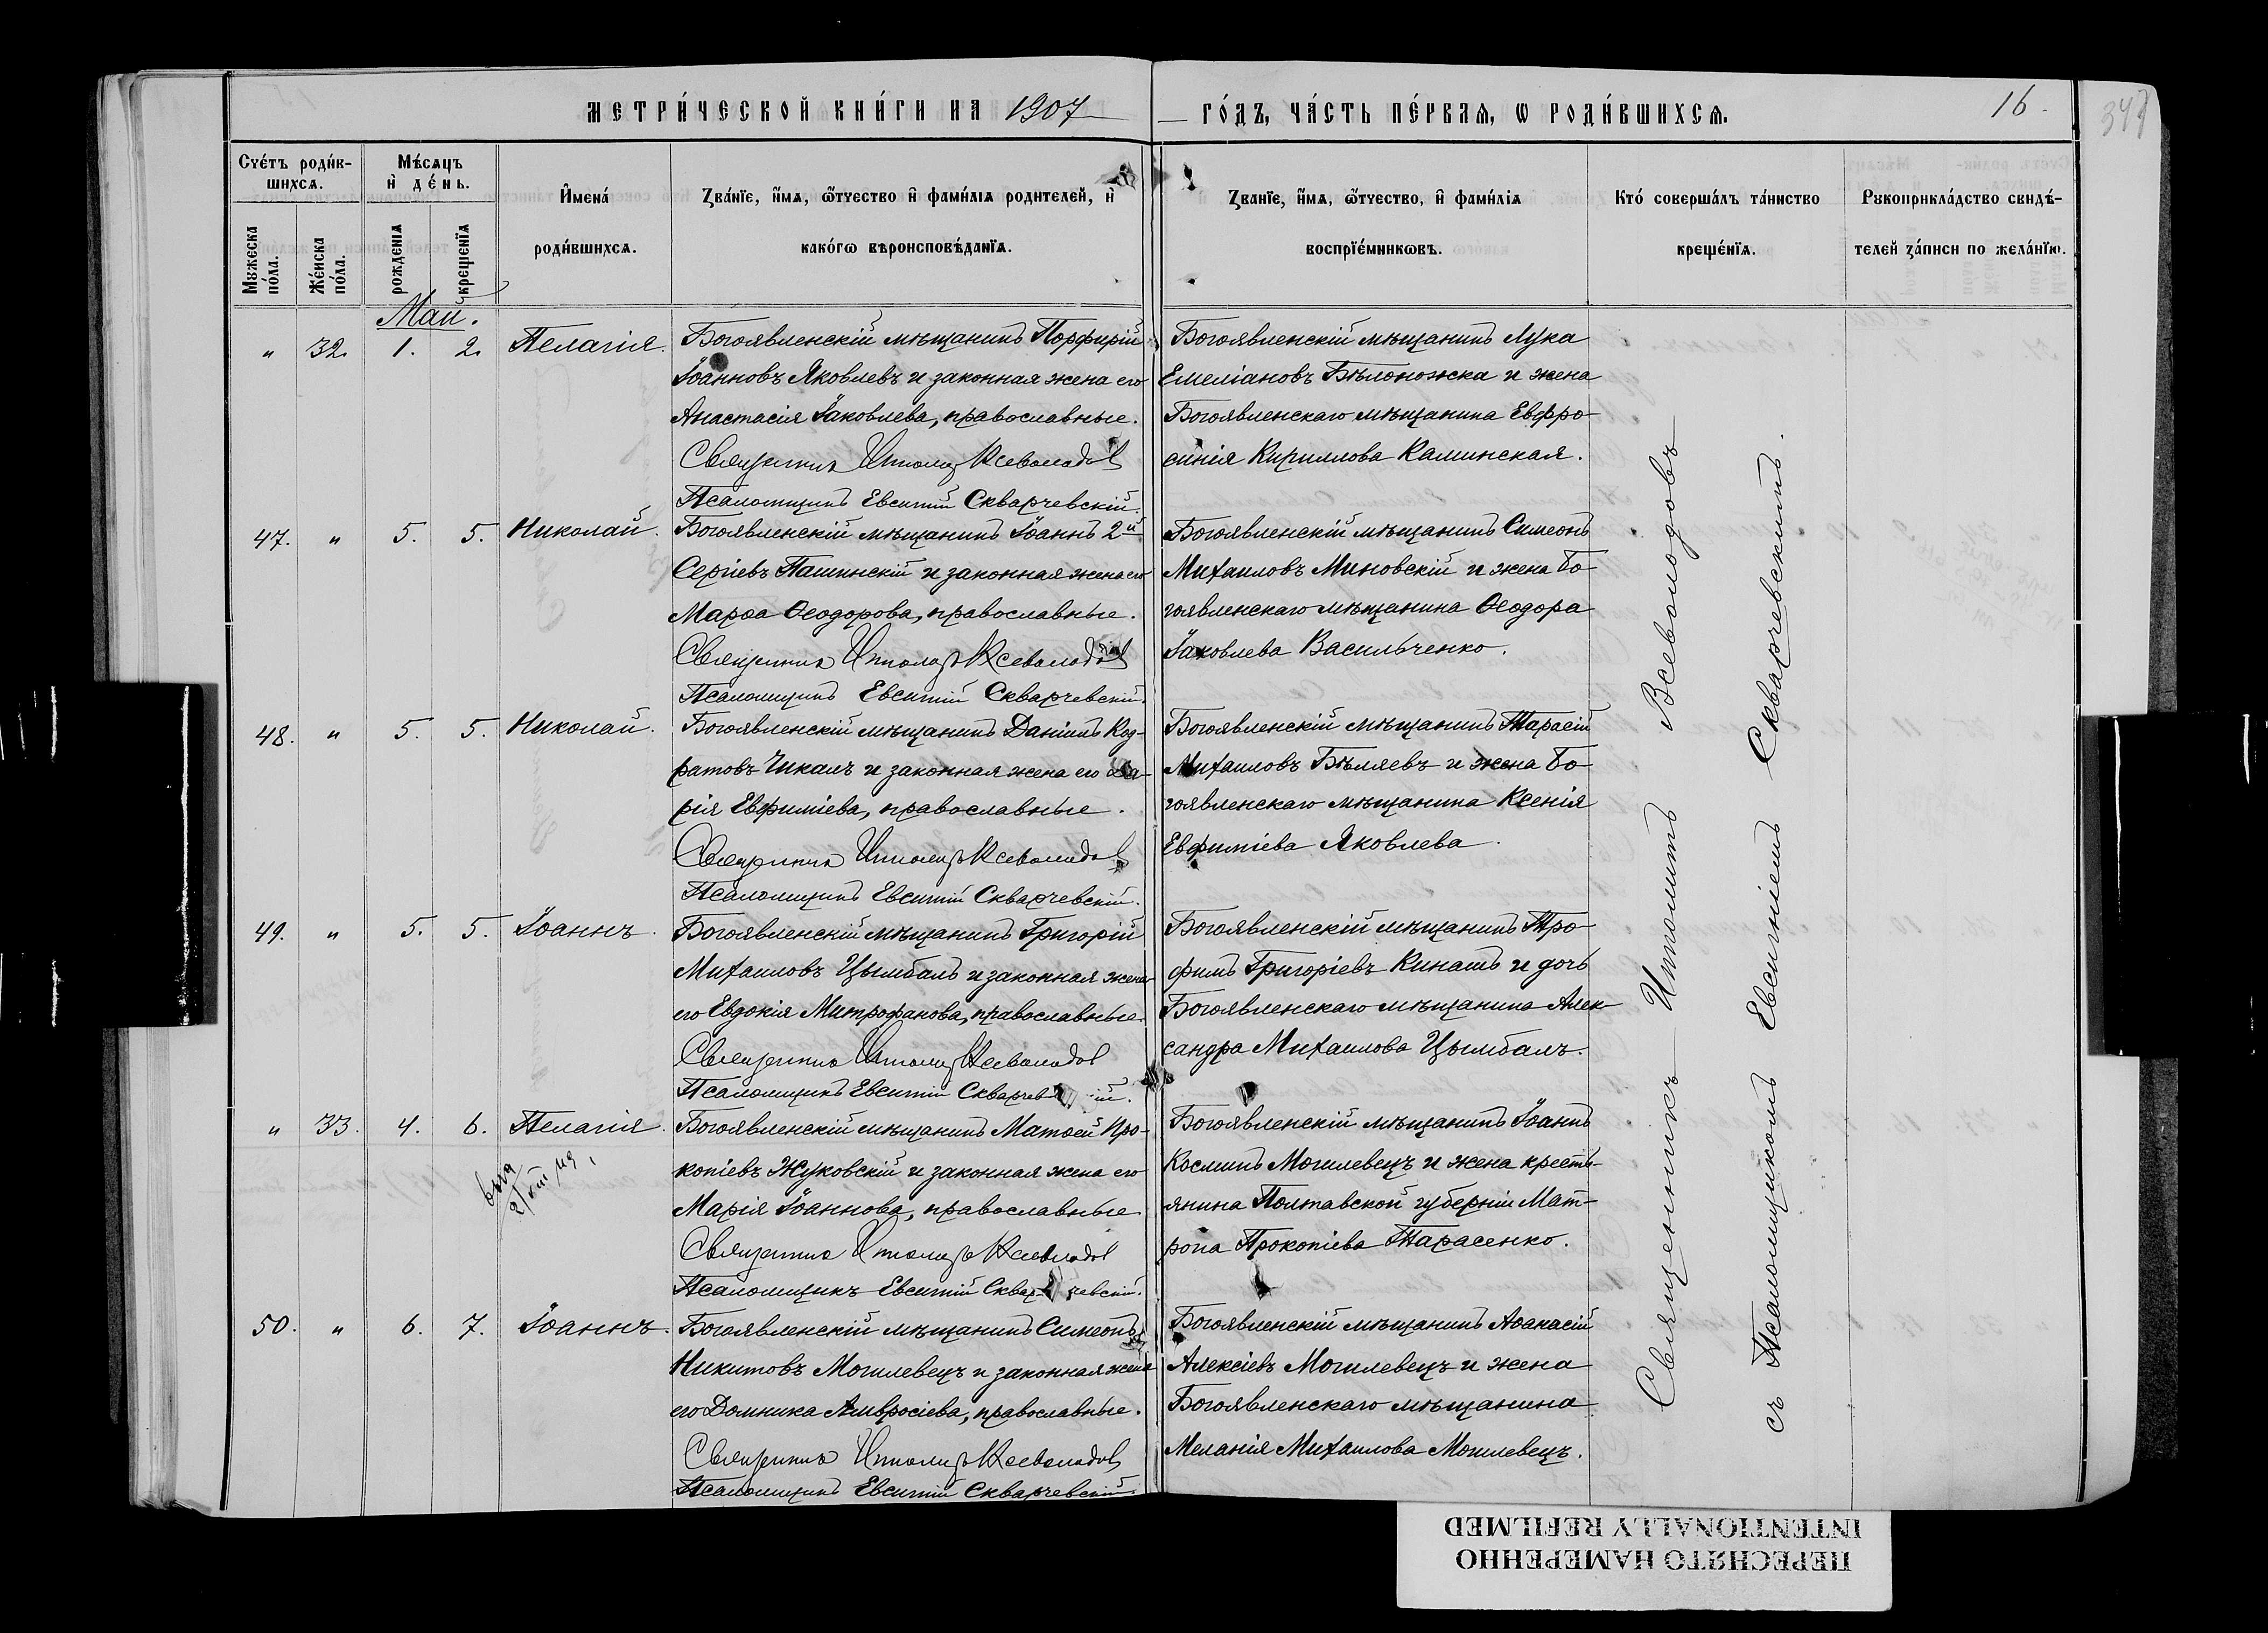 МЕТРИ́ЧЕСКОЙ КНИ́ГИ НА 1907
ГО́ДЪ, ЧА́СТЬ ПЕ́РВАѦ, Ѡ РОДИ́ВШИХСѦ.
16.
347
Счéтъ роди́вшихсѧ.
Мужеска по́ла.
Же́нска по́ла.
Мѣ́сѧцъ и҆ де́нь.
рожденїѧ
крещенїѧ
И҆мена́ роди́вшихсѧ.
Зва́нїе, и҆́мѧ, ѻ҆́тчество и҆ фами́лїѧ родителей, и҆
како́гѡ вѣроисповѣ́данїѧ.
Зва́нїе, и҆́мѧ, ѻ҆́тчество, и҆ фами́лїѧ
воспрїе́мникѡвъ.
Кто́ соверша́лъ та́инство
креще́нїѧ.
Рукоприкла́дство свидѣ́-
телей за́писи по жела́нїю.
Май.
" 32. 1. 2. Пелагія.
Богоявленскій мѣщанинъ Порфирій
Іоанновъ Яковлевъ и законная жена его
Анастасія Іаковлева, православные.
Священникъ Ипполитъ Всеволодов
Псаломщикъ Евсигній Скварчевскій.
Богоявленскій мѣщанинъ Лука
Емеліановъ Бѣлоножка и жена
Богоявленскаго мѣщанина Евфро-
синія Кириллова Каминская.
47. " 5. 5. Николай.
Богоявленскій мѣщанинъ Іоаннъ 2й
Сергіевъ Пашинскій и законная жена его
Марѳа Ѳеодорова, православные.
Священникъ Ипполитъ Всеволодов
Псаломщикъ Евсигній Скварчевскій.
Богоявленскій мѣщанинъ Симеонъ
Михаиловъ Миновскій и жена Бо-
гоявленскаго мѣщанина Ѳеодора
Іаковлева Васильченко.
48. " 5. 5. Николай.
Богоявленскій мѣщанинъ Даніилъ Код-
ратовъ Чикалъ и законная жена его Ма-
рія Евфиміева, православные.
Священникъ Ипполитъ Всеволодов
Псаломщикъ Евсигній Скварчевскій.
Богоявленскій мѣщанинъ Тарасій
Михаиловъ Бѣляевъ и жена Бо-
гоявленскаго мѣщанина Ксенія
Евфиміева Яковлева.
49. " 5. 5. Іоаннъ.
Богоявленскій мѣщанинъ Григорій
Михаиловъ Цымбалъ и законная жена
его Евдокія Митрофанова, православные.
Священникъ Ипполитъ Всеволодов
Псаломщикъ Евсигній Скварчевскій.
Богоявленскій мѣщанинъ Тро-
фимъ Григоріевъ Кинашъ и дочь
Богоявленскаго мѣщанина Алек-
сандра Михаилова Цымбалъ.
" 33. 4. 6. Пелагія.
Богоявленскій мѣщанинъ Матѳей Про-
копіевъ Жуковскій и законная жена его
Марія Іоаннова, православные.
Священникъ Ипполитъ Всеволодов
Псаломщикъ Евсигній Скварчевскій.
Богоявленскій мѣщанинъ Іоаннъ
Косминъ Могилевецъ и жена кресть-
янина Полтавской губерніи Мат-
рона Прокопіева Тарасенко.
50. " 6. 7. Іоаннъ.
Богоявленскій мѣщанинъ Симеонъ
Никитовъ Могилевецъ и законная жена
его Домника Амвросіева, православные.
Священникъ Ипполитъ Всеволодов
Псаломщикъ Евсигній Скварчевскій.
Богоявленскій мѣщанинъ Аѳанасій
Алексіевъ Могилевецъ и жена
Богоявленскаго мѣщанина
Меланія Михаилова Могилевецъ.
Священникъ Ипполитъ Всеволодовъ
съ Псаломщикомъ Евсигніемъ Скварчевскимъ.
ПЕРЕСНЯТО НАМЕРЕННО
INTENTIONALLY REFILMED